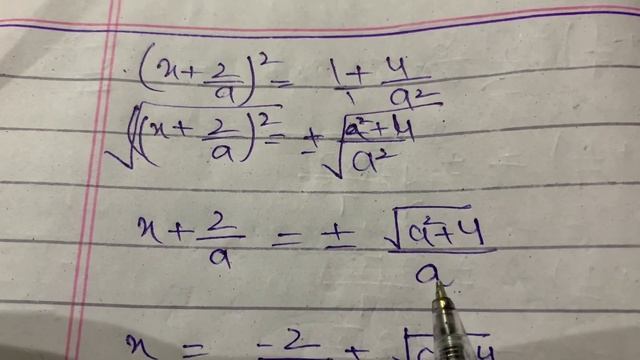 (x + 2/a)² = 1/1 + 4/a²
√(x + 2/a)² = ± √(a² + 4)/√a²
x + 2/a = ± √(a² + 4)/a
x = -2/ + √ 4